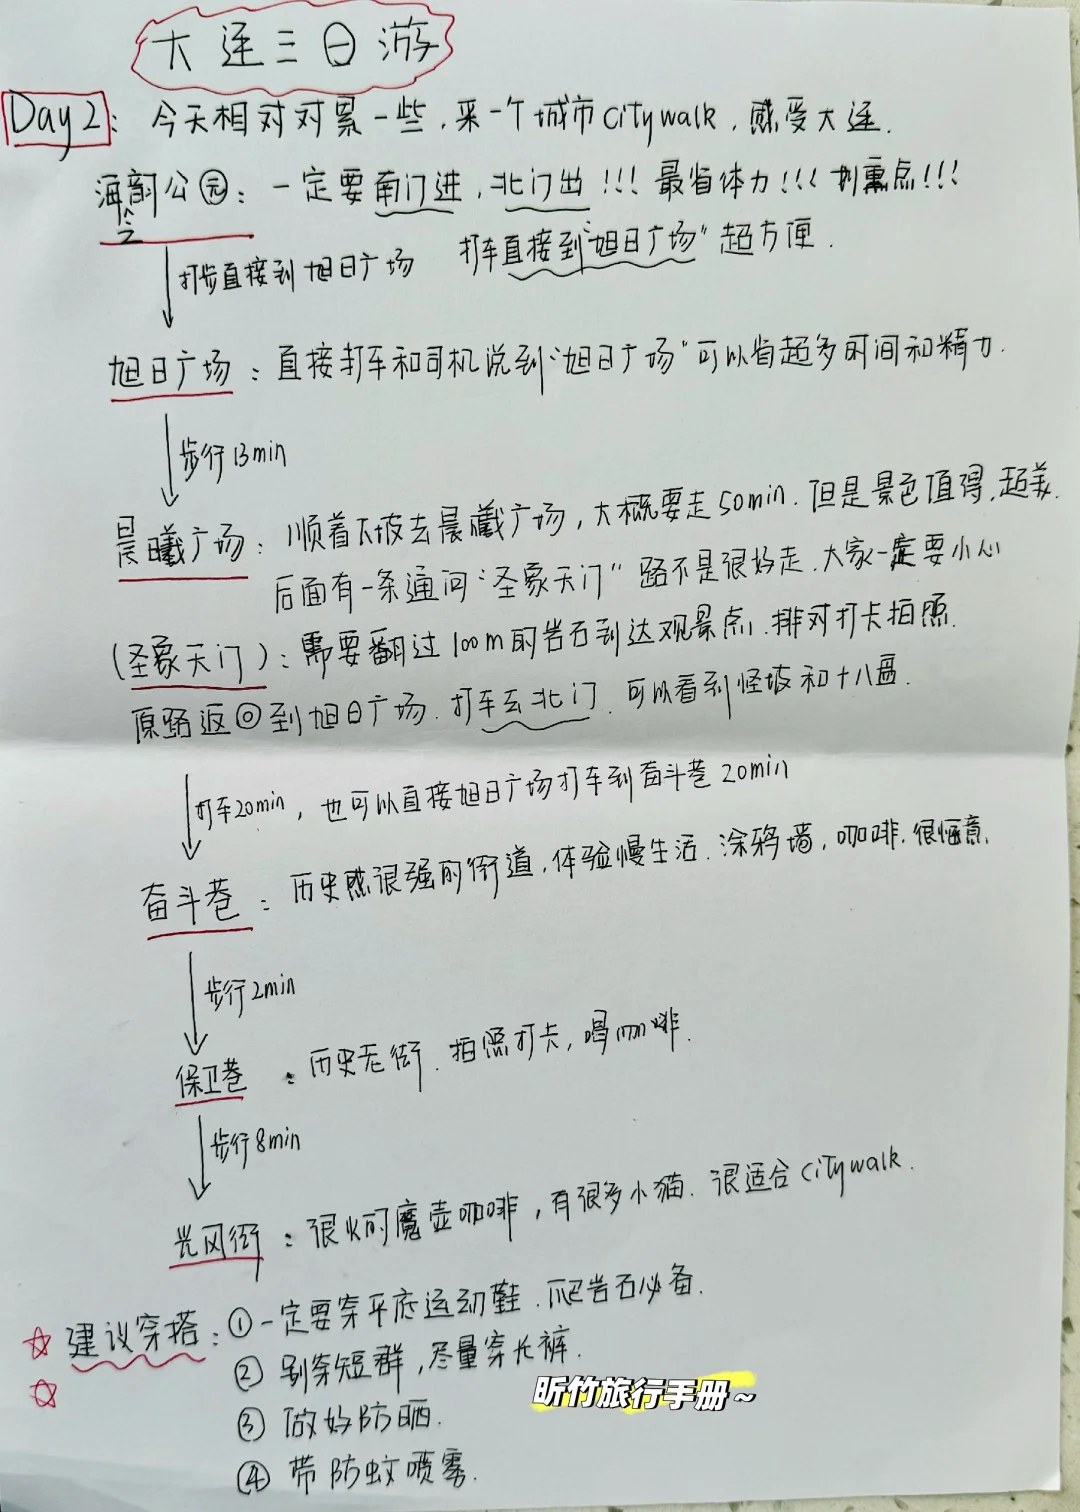 大连三日游
Day2：今天相对对累一些，来一个城市citywalk，感受大连.
海韵公园：一定要南门进，北门出!!! 最省体力!!! 划重点!!!
之
打步直接到旭日广场 打车直接到“旭日广场”超方便.
旭日广场：直接打车和司机说到“旭日广场”可以省超多时间和精力.
步行13min
晨曦广场：顺着下坡去晨曦广场，大概要走50min.但是景色值得，超美.
后面有一条通向“圣象天门”路不是很好走.大家一定要小心
（圣象天门）：需要翻过100m的岩石到达观景点.排对打卡拍照.
原路返回到旭日广场.打车去北门.可以看到怪坡和十八盘.
打车20min，也可以直接旭日广场打车到奋斗巷20min
奋斗巷：历史感很强的街道，体验慢生活.涂鸦墙，咖啡.很惬意.
步行2min
保卫巷：历史老街.拍照打卡，喝咖啡.
步行8min
光风街：很火的魔壶咖啡，有很多小猫.很适合citywalk.
建议穿搭：①一定要穿平底运动鞋.爬岩石必备.
②别穿短群，尽量穿长裤.
③做好防晒.
④带防蚊喷雾.
昕竹旅行手册~